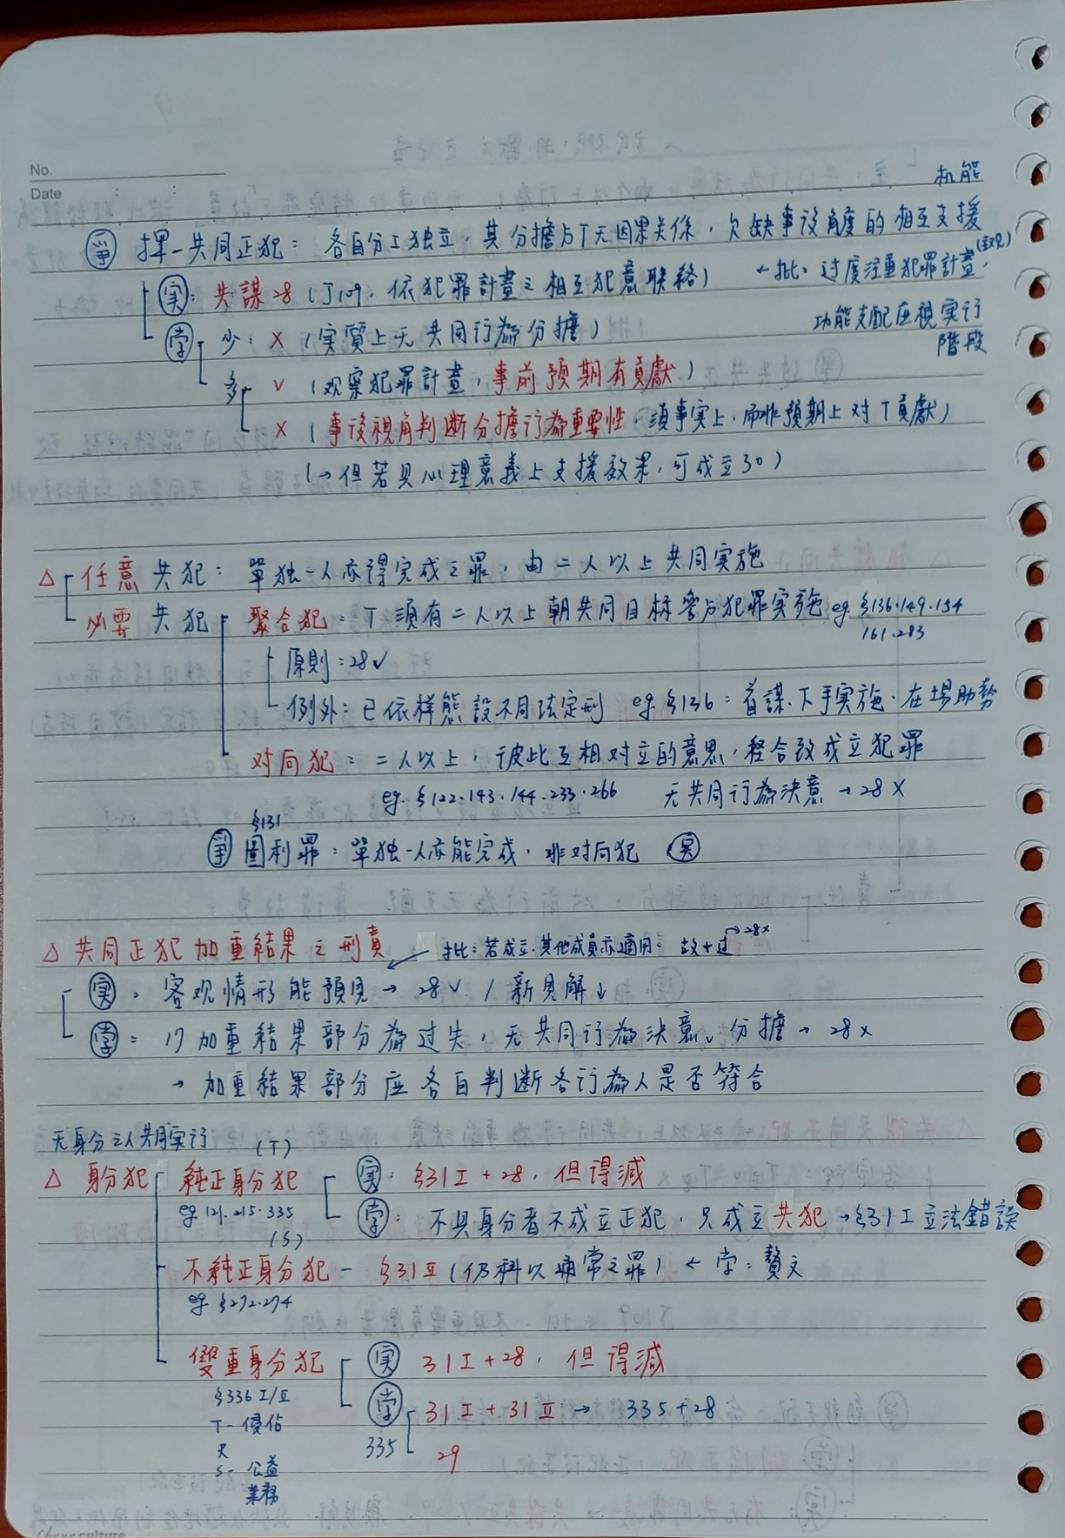 No.
Date : :
机能
爭 擇一共同正犯：各自分工独立，其分擔与T无因果关係，欠缺事後角度的相互支援
実：共謀28（J109，依犯罪計畫之相互犯意聯絡） ←批：过度注重犯罪計畫，
功能支配应視実行
階段
学 少：X（実質上无共同行為分擔）
多 ∨（观察犯罪計畫，事前預期有貢獻）
X（事後視角判断分擔行為重要性，須事実上，而非預期上对T貢獻）
（→但若具心理意義上支援效果，可成立30）
△ 任意共犯：單独一人亦得完成之罪，由二人以上共同実施
必要共犯 聚合犯：T須有二人以上朝共同目标参与犯罪実施 eg. §136.149.154
161.283
原則：28∨
例外：已依样態設不同法定刑 eg. §136：首謀.下手実施.在場助勢
对向犯：二人以上，彼此互相对立的意思，經合致成立犯罪
eg. §122.143.144.233.266 无共同行為決意→28X
§131
爭 圖利罪：單独一人亦能完成，非对向犯 実
△ 共同正犯加重結果之刑責 批：若成立.其他成員亦適用：故+过→28X
実：客观情形能預見→28∨/新見解↓
学：加重結果部分為过失，无共同行為決意、分擔→28X
→加重結果部分应各自判断各行為人是否符合
无身分之人共同実行 (T)
△ 身分犯 純正身分犯 実：§31I+28，但得減
eg. 121.215.335 学：不具身分者不成立正犯，只成立共犯→§31I立法錯誤
(S)
不純正身分犯－§31II（仍科以通常之罪）←学：贅文
eg. §272.274
雙重身分犯 実 31I+28，但得減
§336I/II 学 31I+31II→335+28
T－侵佔
335 29
S－公益
業務